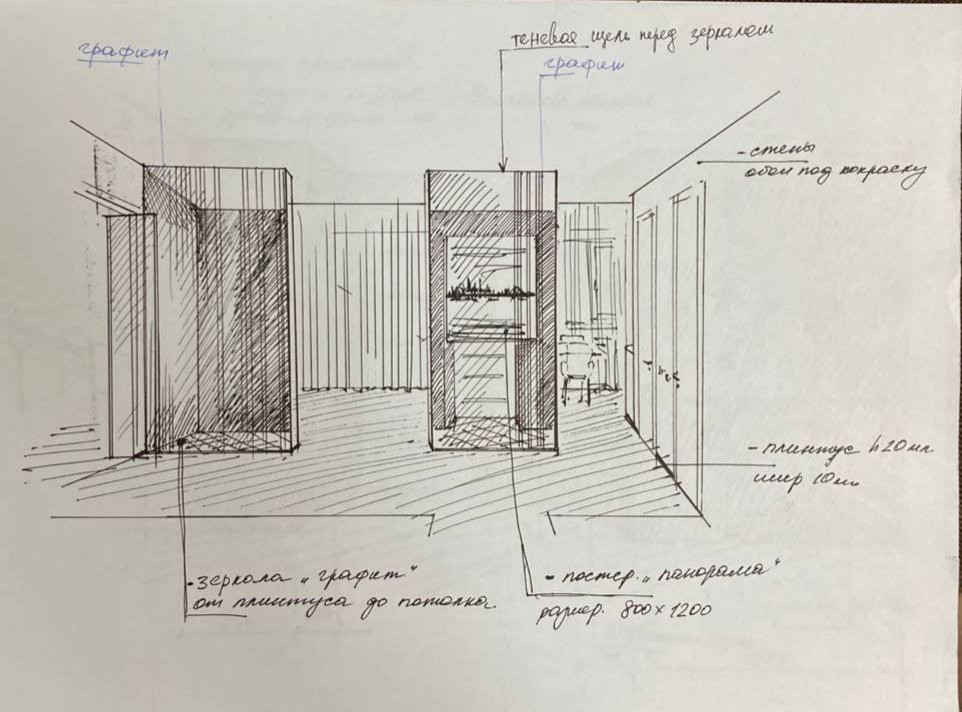 теневая щель перед зеркалом
графит
графит
- стены
обои под покраску
- плинтус h 20 мм.
шир 10 мм
- зеркала „графит"
от плинтуса до потолка.
- постер. „панорама"
размер. 800 x 1200